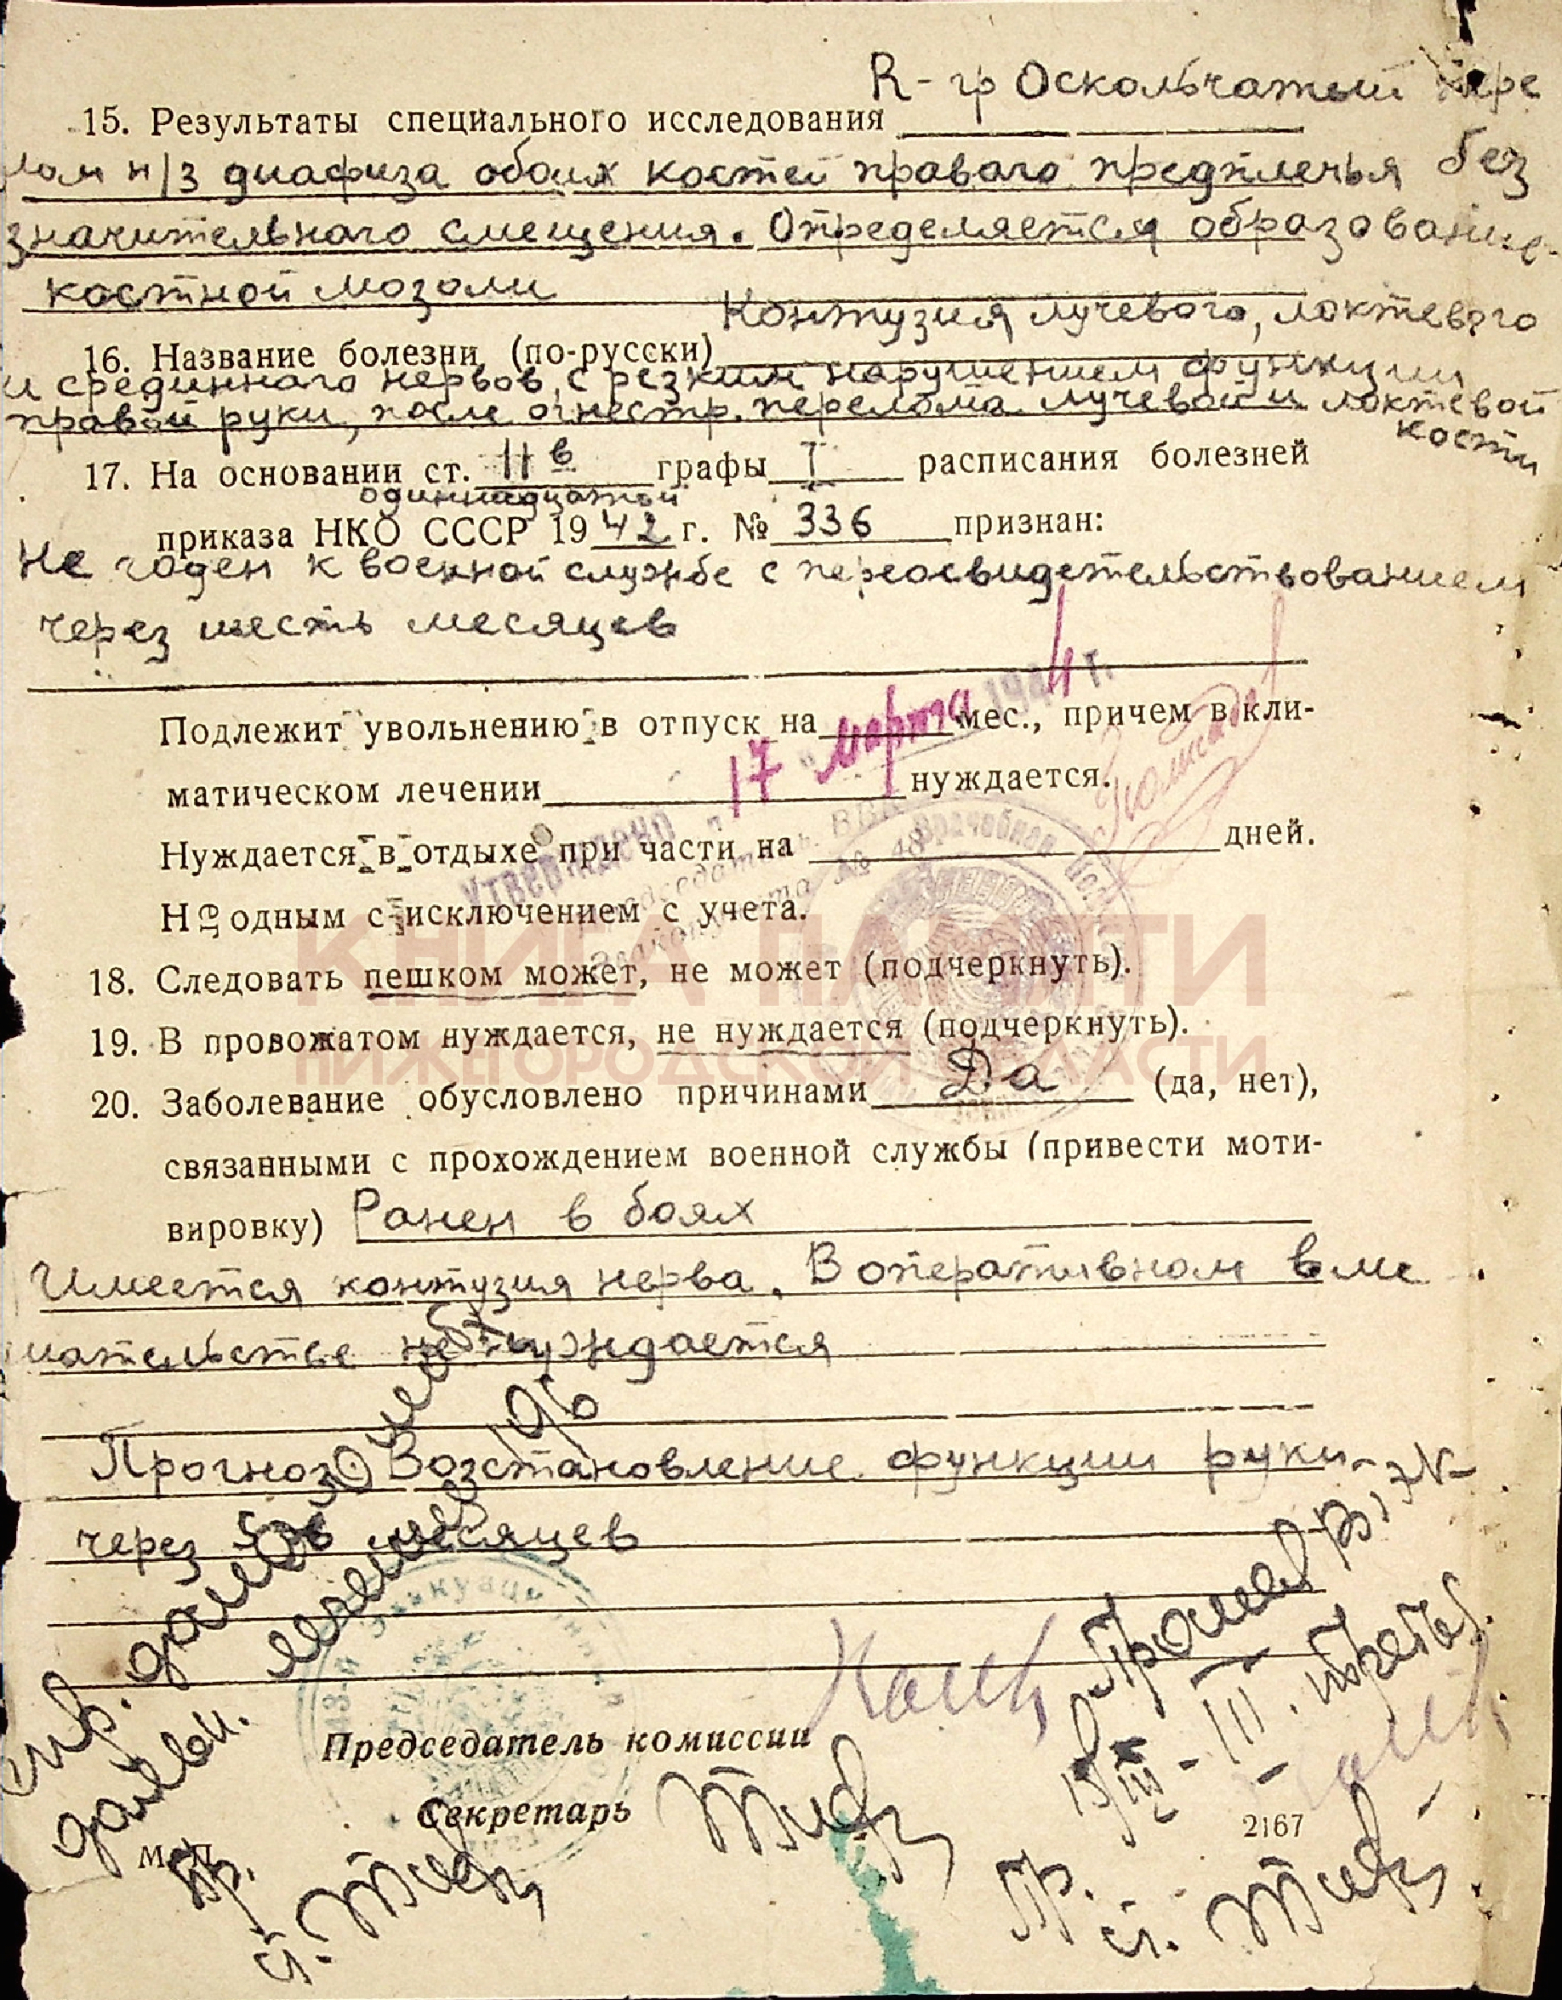 R-гр Оскольчатый пере
15. Результаты специального исследования
лом н/з диафиза обоих костей правого предплечья без
значительного смещения. Определяется образование
костной мозоли
Контузия лучевого, локтевого
16. Название болезни (по-русски)
и срединного нервов, с резким нарушением функции
правой руки, после огнестр. перелома лучевой и локтевой
кости
17. На основании ст. 11 в графы I расписания болезней
одиннадцатой
приказа НКО СССР 1942 г. № 336 признан:
Не годен к военной службе с переосвидетельствованием
через шесть месяцев
Подлежит увольнению в отпуск на мес., причем в кли-
17 марта 1944 г.
матическом лечении нуждается.
Утверждено
Председатель ВВК
Эвакопункта № 48
Врачебная
Нуждается в отдыхе при части на дней.
Не годным с исключением с учета.
КНИГА ПАМЯТИ
18. Следовать пешком может, не может (подчеркнуть).
19. В провожатом нуждается, не нуждается (подчеркнуть).
НИЖЕГОРОДСКОЙ ОБЛАСТИ
20. Заболевание обусловлено причинами Да (да, нет),
связанными с прохождением военной службы (привести моти-
вировку) Ранен в боях
Имеется контузия нерва. В оперативном вме
шательстве не нуждается
Прогноз: Возстановление функции руки
через 5-6 месяцев
Председатель комиссии
Секретарь
2167
М. П.